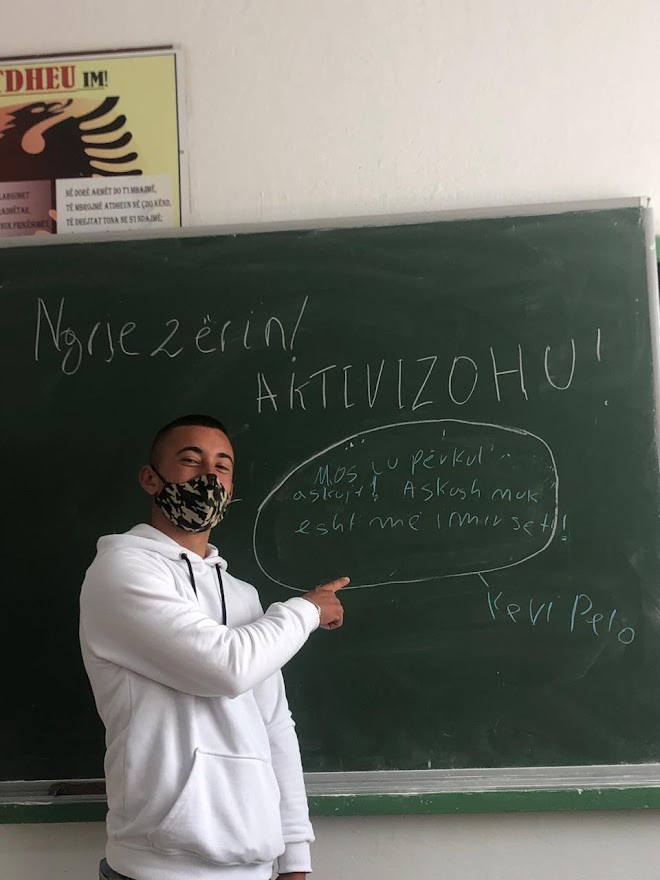 TDHEU IM!
LABSHMET
NË DORË ARMËT DO T'I MBAJMË,
TË MBROJMË ATDHEUN NË ÇDO KËND,
TË DREJTAT TONA NE S'I NDAJMË;
Ngrje zërin!
AKTIVIZOHU!
Mos ju përkul
askujt! Askush nuk
esht më i mir se ti!
Kevi Pelo